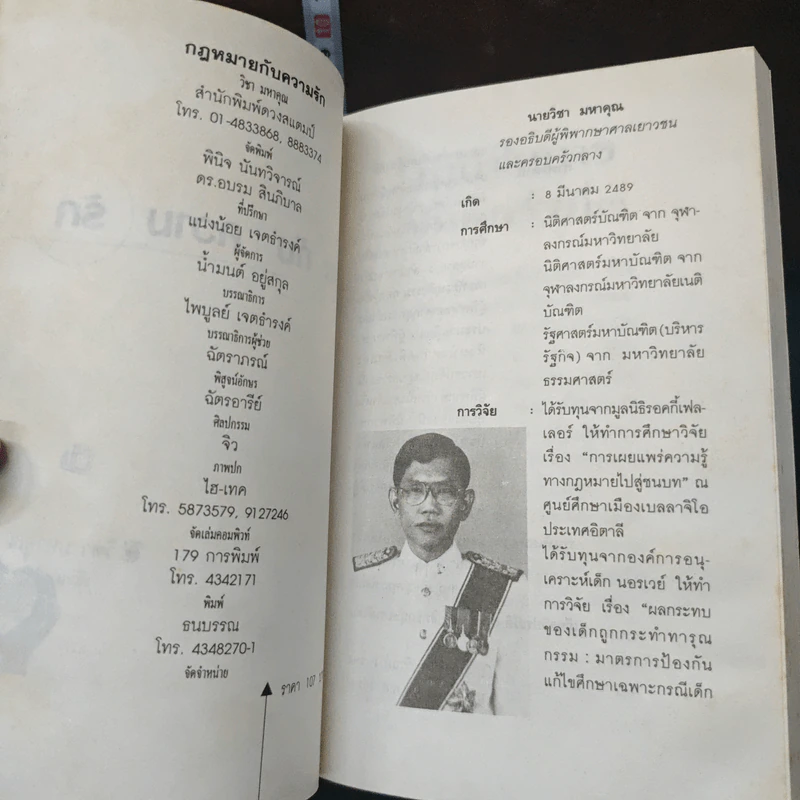 กฎหมายกับความรัก
วิชา มหาคุณ
สำนักพิมพ์ดวงสแตมป์
โทร. 01-4833868, 8883374
จัดพิมพ์
พินิจ นันทวิจารณ์
ดร.อบรม สินภิบาล
ที่ปรึกษา
แน่งน้อย เจตธำรงค์
ผู้จัดการ
น้ำมนต์ อยู่สกุล
บรรณาธิการ
ไพบูลย์ เจตธำรงค์
บรรณาธิการผู้ช่วย
ฉัตราภรณ์
พิสูจน์อักษร
ฉัตรอารีย์
ศิลปกรรม
จิว
ภาพปก
ไฮ-เทค
โทร. 5873579, 9127246
จัดเล่มคอมพิวท์
179 การพิมพ์
โทร. 4342171
พิมพ์
ธนบรรณ
โทร. 4348270-1
จัดจำหน่าย
ราคา 107
นายวิชา มหาคุณ
รองอธิบดีผู้พิพากษาศาลเยาวชน
และครอบครัวกลาง
เกิด : 8 มีนาคม 2489
การศึกษา : นิติศาสตร์บัณฑิต จาก จุฬา-
ลงกรณ์มหาวิทยาลัย
นิติศาสตร์มหาบัณฑิต จาก
จุฬาลงกรณ์มหาวิทยาลัยเนติ
บัณฑิต
รัฐศาสตร์มหาบัณฑิต(บริหาร
รัฐกิจ) จาก มหาวิทยาลัย
ธรรมศาสตร์
การวิจัย : ได้รับทุนจากมูลนิธิรอคกี้เฟล-
เลอร์ ให้ทำการศึกษาวิจัย
เรื่อง "การเผยแพร่ความรู้
ทางกฎหมายไปสู่ชนบท" ณ
ศูนย์ศึกษาเมืองเบลลาจิโอ
ประเทศอิตาลี
ได้รับทุนจากองค์การอนุ-
เคราะห์เด็ก นอรเวย์ ให้ทำ
การวิจัย เรื่อง "ผลกระทบ
ของเด็กถูกกระทำทารุณ
กรรม : มาตรการป้องกัน
แก้ไขศึกษาเฉพาะกรณีเด็ก